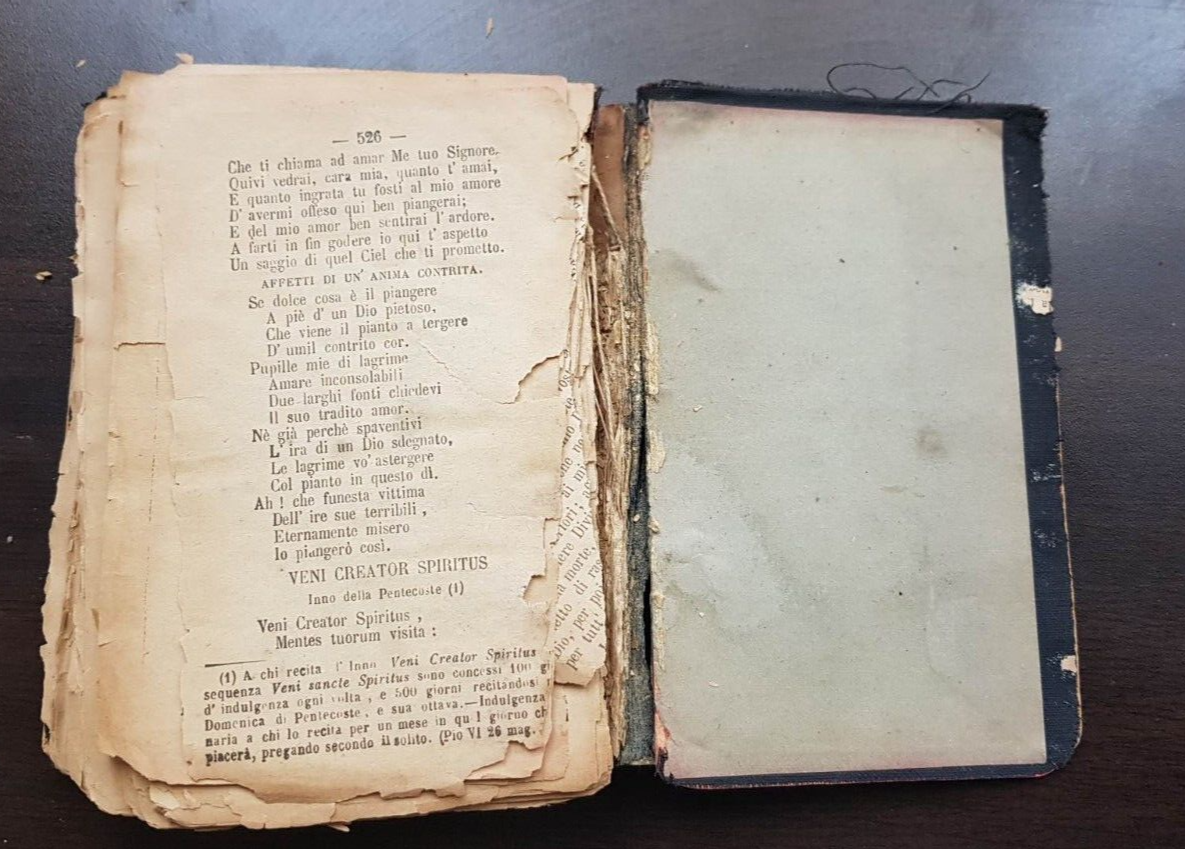 — 526 —
Che ti chiama ad amar Me tuo Signore.
Quivi vedrai, cara mia, quanto t' amai,
E quanto ingrata tu fosti al mio amore
D' avermi offeso qui ben piangerai;
E del mio amor ben sentirai l' ardore.
A farti in fin godere io qui t' aspetto
Un saggio di quel Ciel che ti prometto.
AFFETTI DI UN' ANIMA CONTRITA.
Se dolce cosa è il piangere
A piè d' un Dio pietoso,
Che viene il pianto a tergere
D' umil contrito cor.
Pupille mie di lagrime
Amare inconsolabili
Due larghi fonti chiedevi
Il suo tradito amor.
Nè già perchè spaventivi
L' ira di un Dio sdegnato,
Le lagrime vo' astergere
Col pianto in questo dì.
Ah ! che funesta vittima
Dell' ire sue terribili ,
Eternamente misero
Io piangerò così.
VENI CREATOR SPIRITUS
Inno della Pentecoste (1)
Veni Creator Spiritus ,
Mentes tuorum visita :
(1) A chi recita l' Inno Veni Creator Spiritus
sequenza Veni sancte Spiritus sono concessi 100 gi
d' indulgenza ogni volta , e 500 giorni recitandosi
Domenica di Pentecoste , e sua ottava.—Indulgenza
naria a chi lo recita per un mese in qu l giorno ch
piacerà, pregando secondo il solito. (Pio VI 26 mag.
ai mi
rlori; a
ere Div
a morte,
etto di ra
Dio, per po
per tutt'